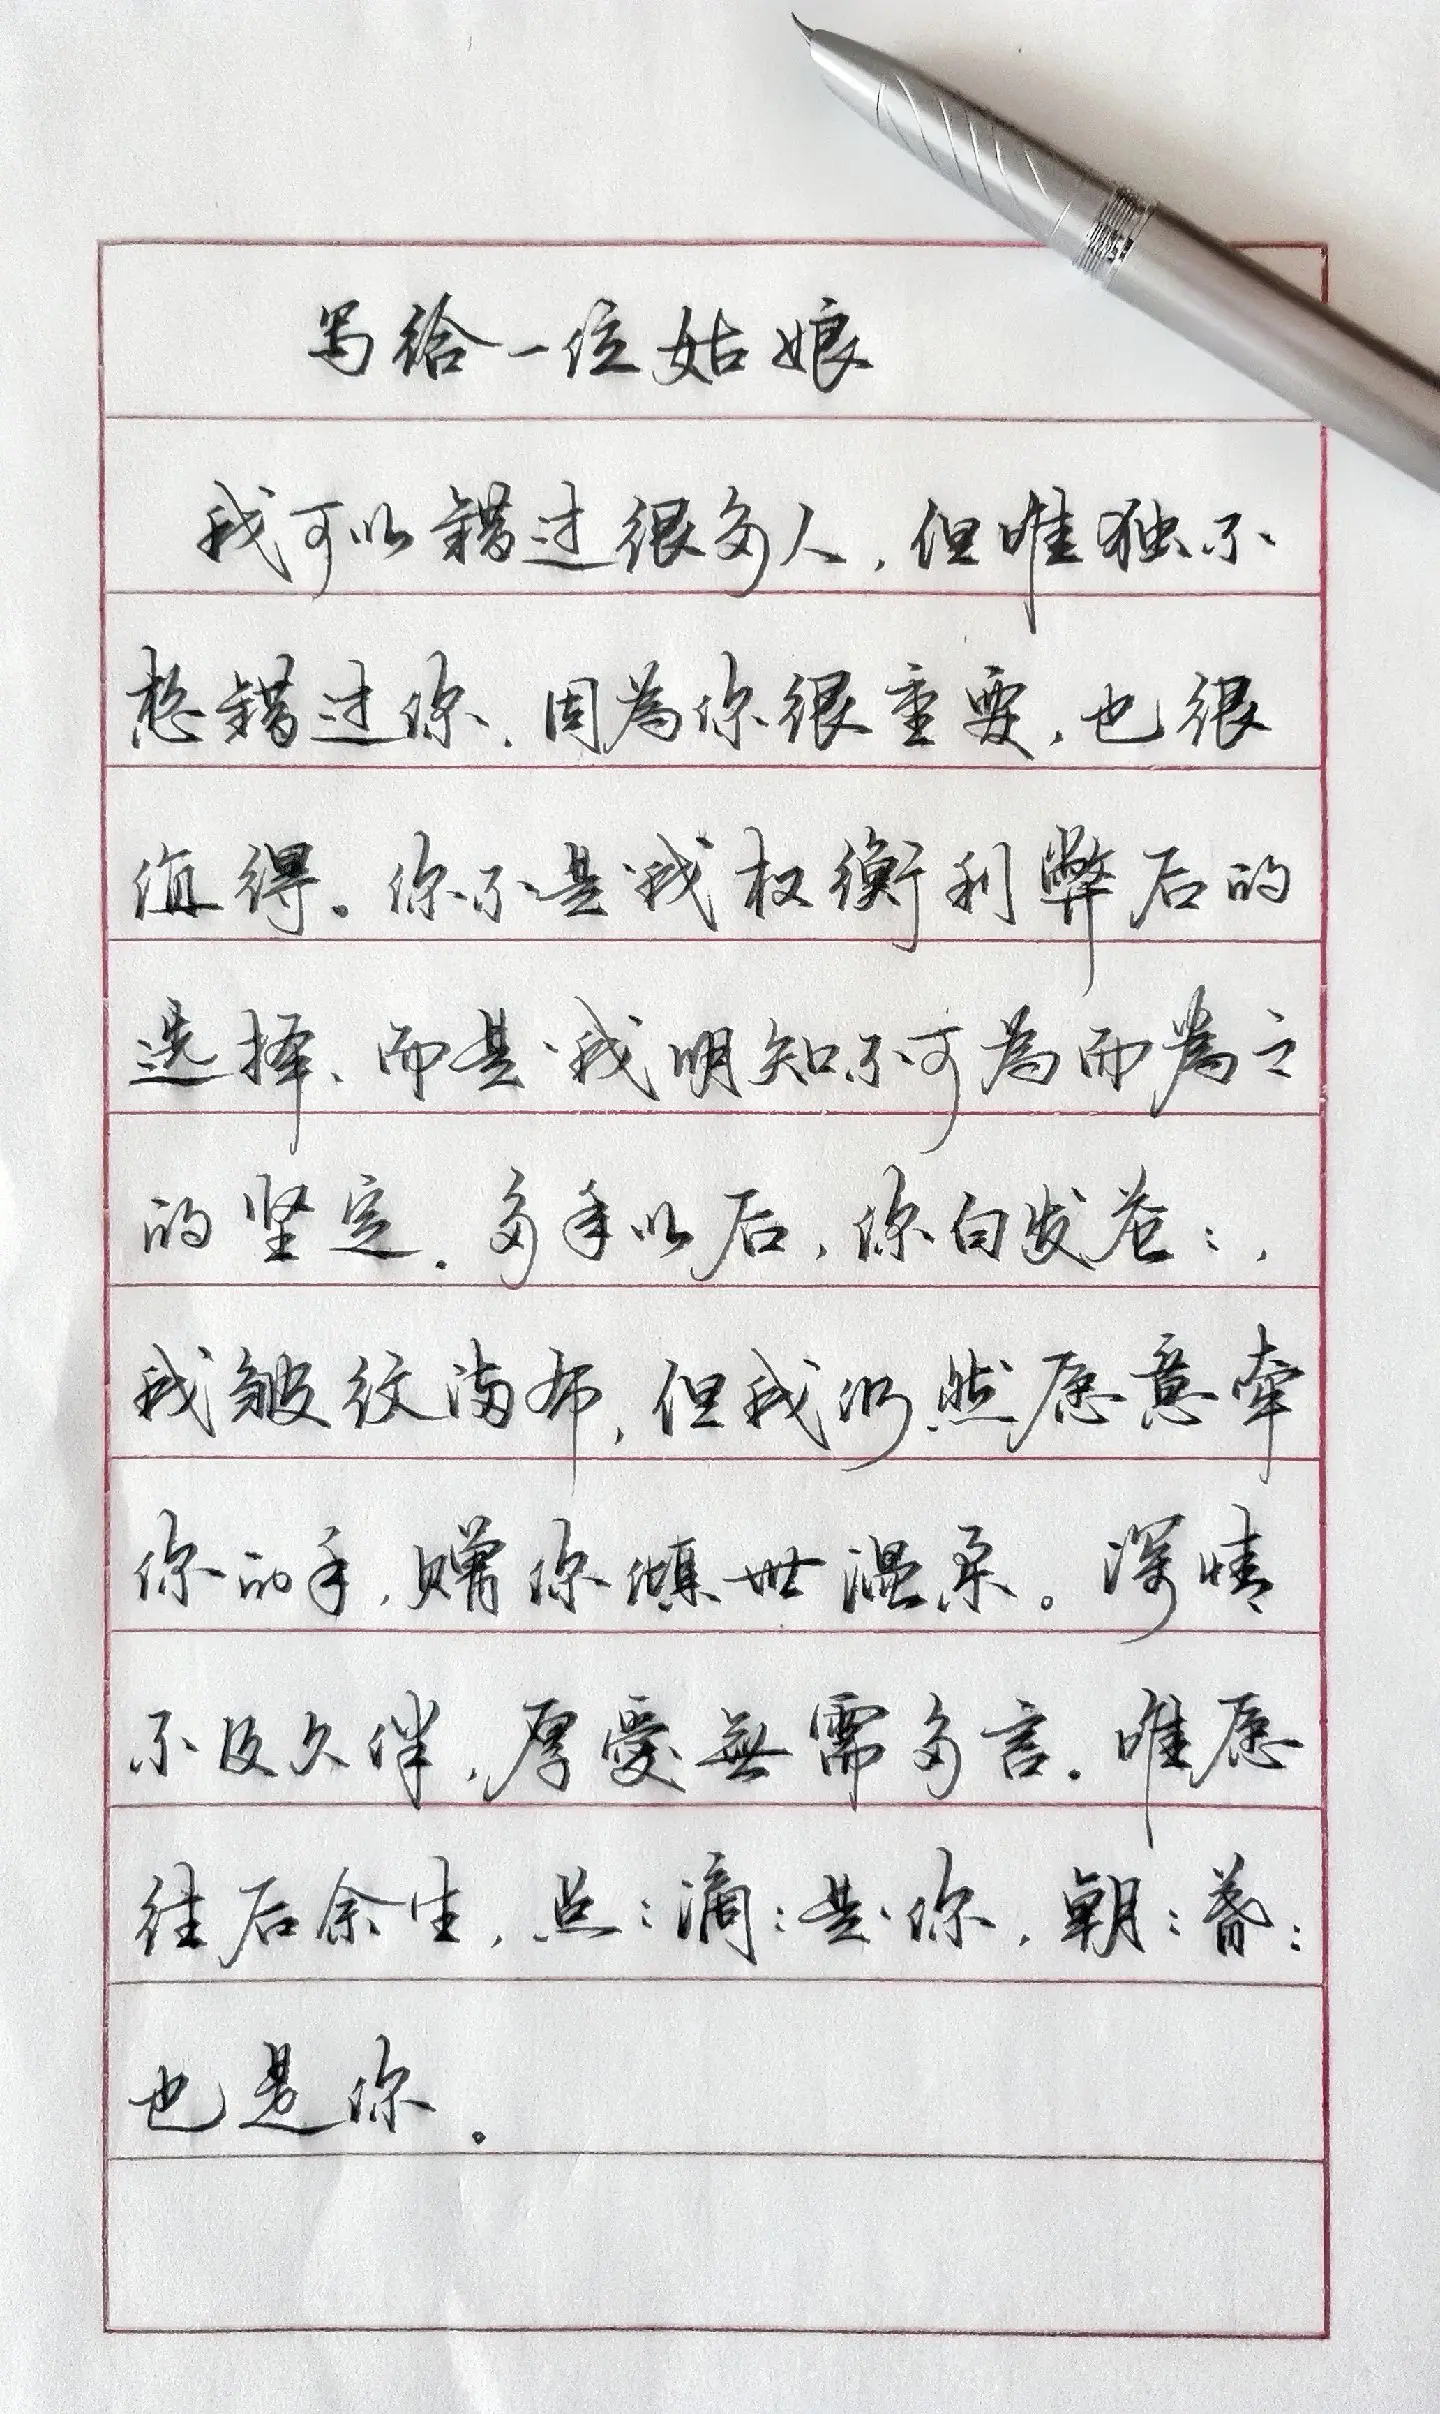 写给一位姑娘
我可以错过很多人，但唯独不
想错过你、因為你很重要，也很
值得。你不是我权衡利弊后的
选择、而是我明知不可為而為之
的坚定．多年以后，你白发苍：，
我皱纹满布，但我仍然愿意牵
你的手，赠你倾世温柔。深情
不及久伴，厚爱無需多言．唯愿
往后余生，点：滴：是你，朝：暮：
也是你。